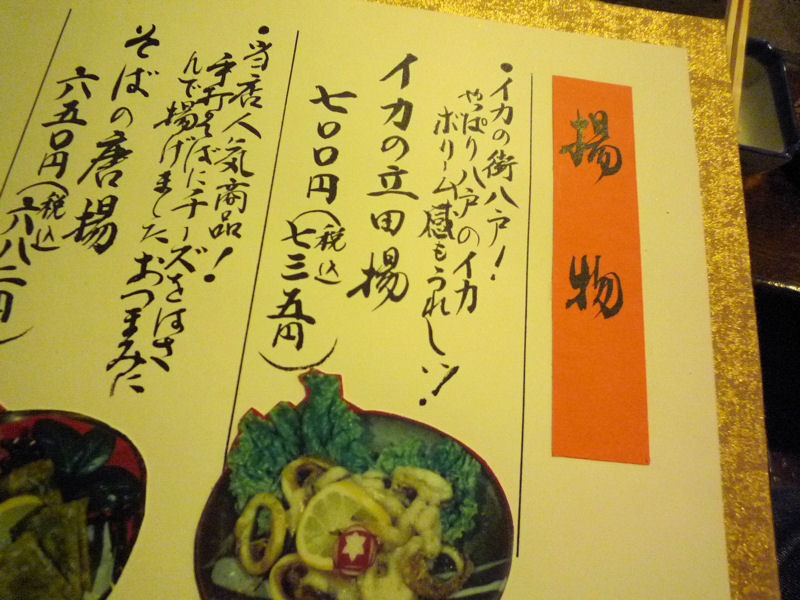 揚物
・イカの街八戸!
やっぱり八戸のイカ
ボリーム感もうれしい!
イカの立田揚
七〇〇円(税込七三五円)
・当店人気商品!
手打そばにチーズをはさ
んで揚げました おつまみに
そばの唐揚
六五〇円(税込六八二円)